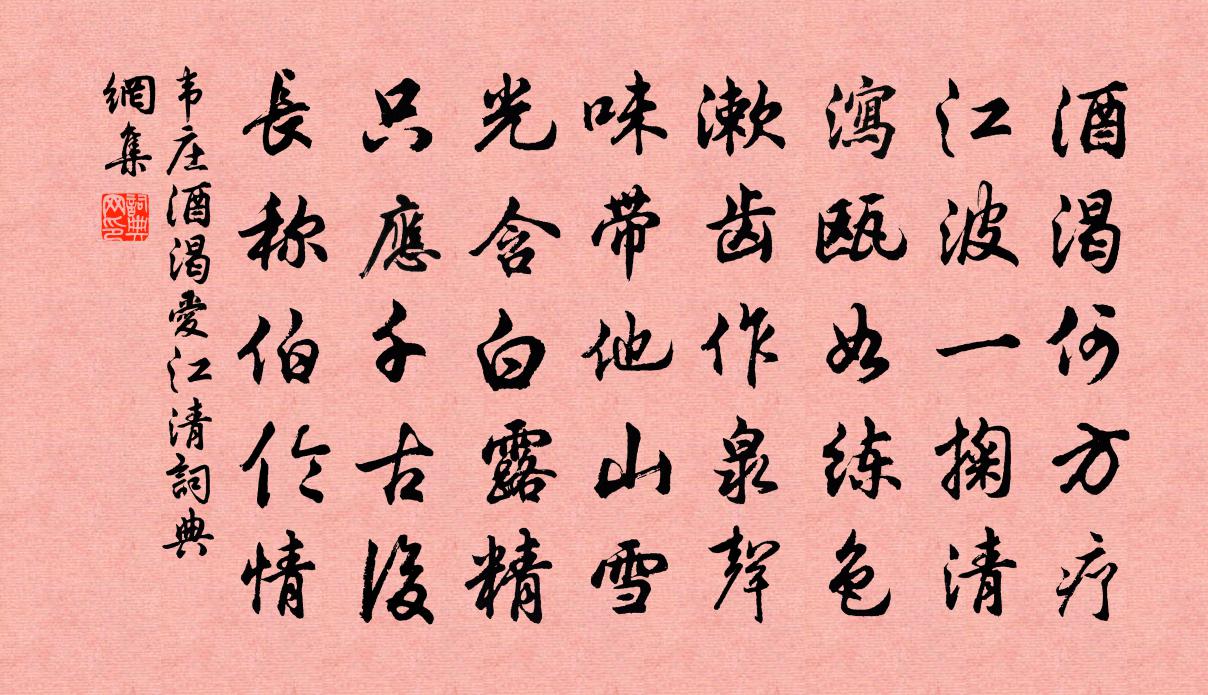 酒渴何方疗
江波一掬清
瀉瓯如练色
漱齿作泉聲
味带他山雪
光含白露精
只應千古後
長称伯伦情
韦庄酒渴愛江清詞典
網集
詞典網印